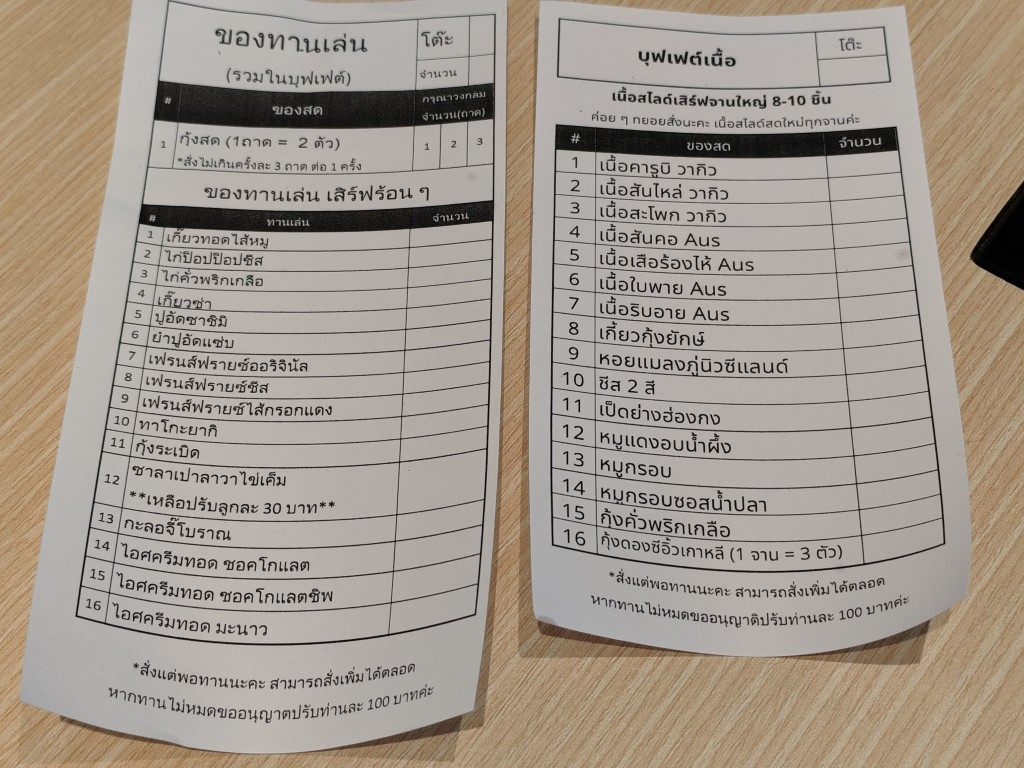 ของทานเล่น
(รวมในบุฟเฟต์)
โต๊ะ
จำนวน
# ของสด กรุณาวงกลม จำนวน(ถาด)
1 กุ้งสด (1ถาด = 2 ตัว) 1 2 3
*สั่งไม่เกินครั้งละ 3 ถาด ต่อ 1 ครั้ง
ของทานเล่น เสิร์ฟร้อน ๆ
# ทานเล่น จำนวน
1 เกี๊ยวทอดไส้หมู
2 ไก่ป๊อปป๊อปชีส
3 ไก่คั่วพริกเกลือ
4 เกี๊ยวซ่า
5 ปูอัดซาชิมิ
6 ยำปูอัดแซ่บ
7 เฟรนส์ฟรายซ์ออริจินัล
8 เฟรนส์ฟรายซ์ชีส
9 เฟรนส์ฟรายซ์ไส้กรอกแดง
10 ทาโกะยากิ
11 กุ้งระเบิด
12 ซาลาเปาลาวาไข่เค็ม
**เหลือปรับลูกละ 30 บาท**
13 กะลอจี๊โบราณ
14 ไอศครีมทอด ชอคโกแลต
15 ไอศครีมทอด ชอคโกแลตชิพ
16 ไอศครีมทอด มะนาว
*สั่งแต่พอทานนะคะ สามารถสั่งเพิ่มได้ตลอด
หากทานไม่หมดขออนุญาตปรับท่านละ 100 บาทค่ะ
บุฟเฟต์เนื้อ
โต๊ะ
เนื้อสไลด์เสิร์ฟจานใหญ่ 8-10 ชิ้น
ค่อย ๆ ทยอยสั่งนะคะ เนื้อสไลด์สดใหม่ทุกจานค่ะ
# ของสด จำนวน
1 เนื้อคารูบิ วากิว
2 เนื้อสันไหล่ วากิว
3 เนื้อสะโพก วากิว
4 เนื้อสันคอ Aus
5 เนื้อเสือร้องไห้ Aus
6 เนื้อใบพาย Aus
7 เนื้อริบอาย Aus
8 เกี้ยวกุ้งยักษ์
9 หอยแมลงภู่นิวซีแลนด์
10 ชีส 2 สี
11 เป็ดย่างฮ่องกง
12 หมูแดงอบน้ำผึ้ง
13 หมูกรอบ
14 หมูกรอบซอสน้ำปลา
15 กุ้งคั่วพริกเกลือ
16 กุ้งดองซีอิ้วเกาหลี (1 จาน = 3 ตัว)
*สั่งแต่พอทานนะคะ สามารถสั่งเพิ่มได้ตลอด
หากทานไม่หมดขออนุญาติปรับท่านละ 100 บาทค่ะ